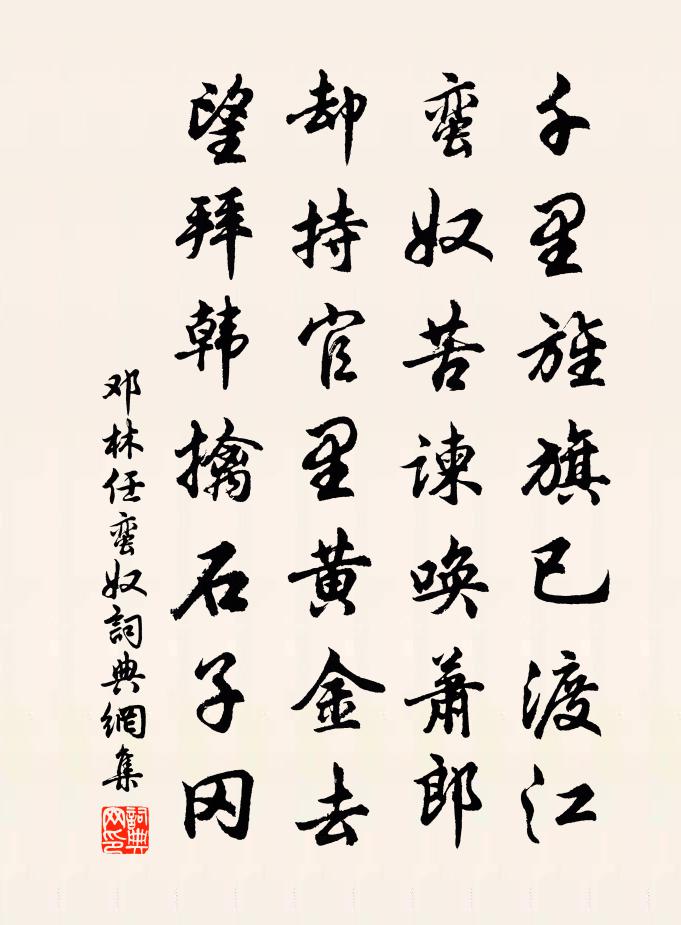 千里旌旗已渡江
蛮奴苦谏唤萧郎
却持官里黄金去
望拜韩擒石子冈
邓林任蛮奴詞典網集
詞典
网印